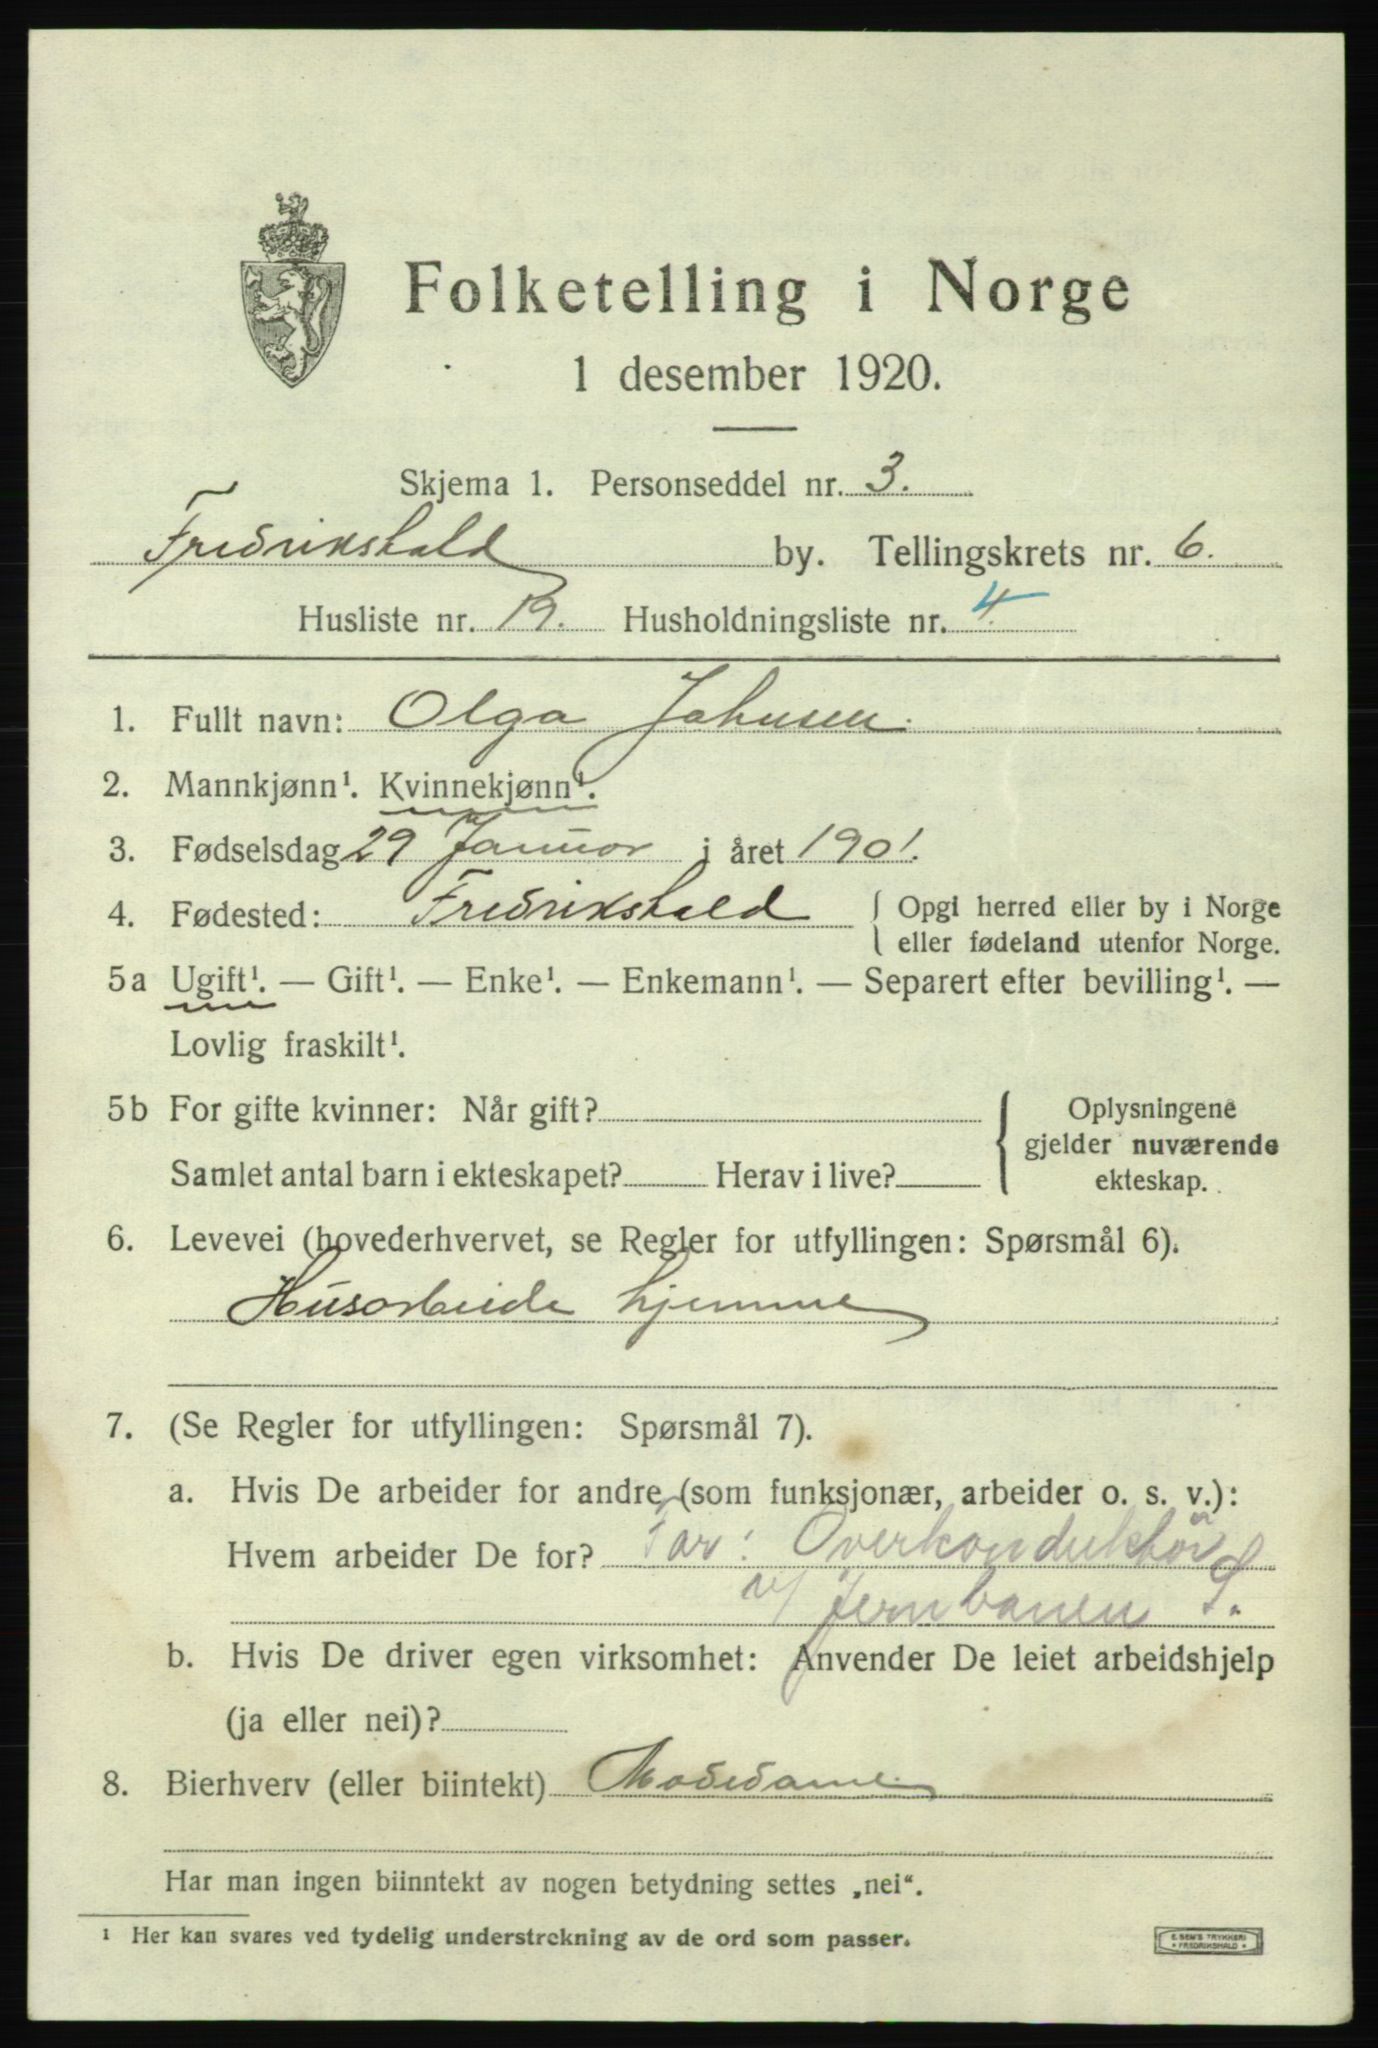 Folketelling i Norge
1 desember 1920.
Skjema 1. Personseddel nr. 3.
Fredrikshald by. Tellingskrets nr. 6.
Husliste nr. 19. Husholdningsliste nr. 4.
1. Fullt navn: Olga Johnsen.
2. Mannkjønn¹. Kvinnekjønn¹.
3. Fødselsdag 29 Januar i året 1901.
4. Fødested: Fredrikshald { Opgi herred eller by i Norge
eller fødeland utenfor Norge.
5a Ugift¹. — Gift¹. — Enke¹. — Enkemann¹. — Separert efter bevilling¹. —
Lovlig fraskilt¹.
5b For gifte kvinner: Når gift? { Oplysningene
gjelder nuværende
Samlet antal barn i ekteskapet? Herav i live? ekteskap.
6. Levevei (hovederhvervet, se Regler for utfyllingen: Spørsmål 6).
Husarbeide hjemme
7. (Se Regler for utfyllingen: Spørsmål 7).
a. Hvis De arbeider for andre (som funksjonær, arbeider o. s. v.):
Hvem arbeider De for? Far: Overkonduktör
v/ Jernbanen S.
b. Hvis De driver egen virksomhet: Anvender De leiet arbeidshjelp
(ja eller nei)?
8. Bierhverv (eller biintekt) Modedame
Har man ingen biinntekt av nogen betydning settes „nei“.
¹ Her kan svares ved tydelig understrekning av de ord som passer.
E. SEM'S TRYKKERI
* FREDRIKSHALD *